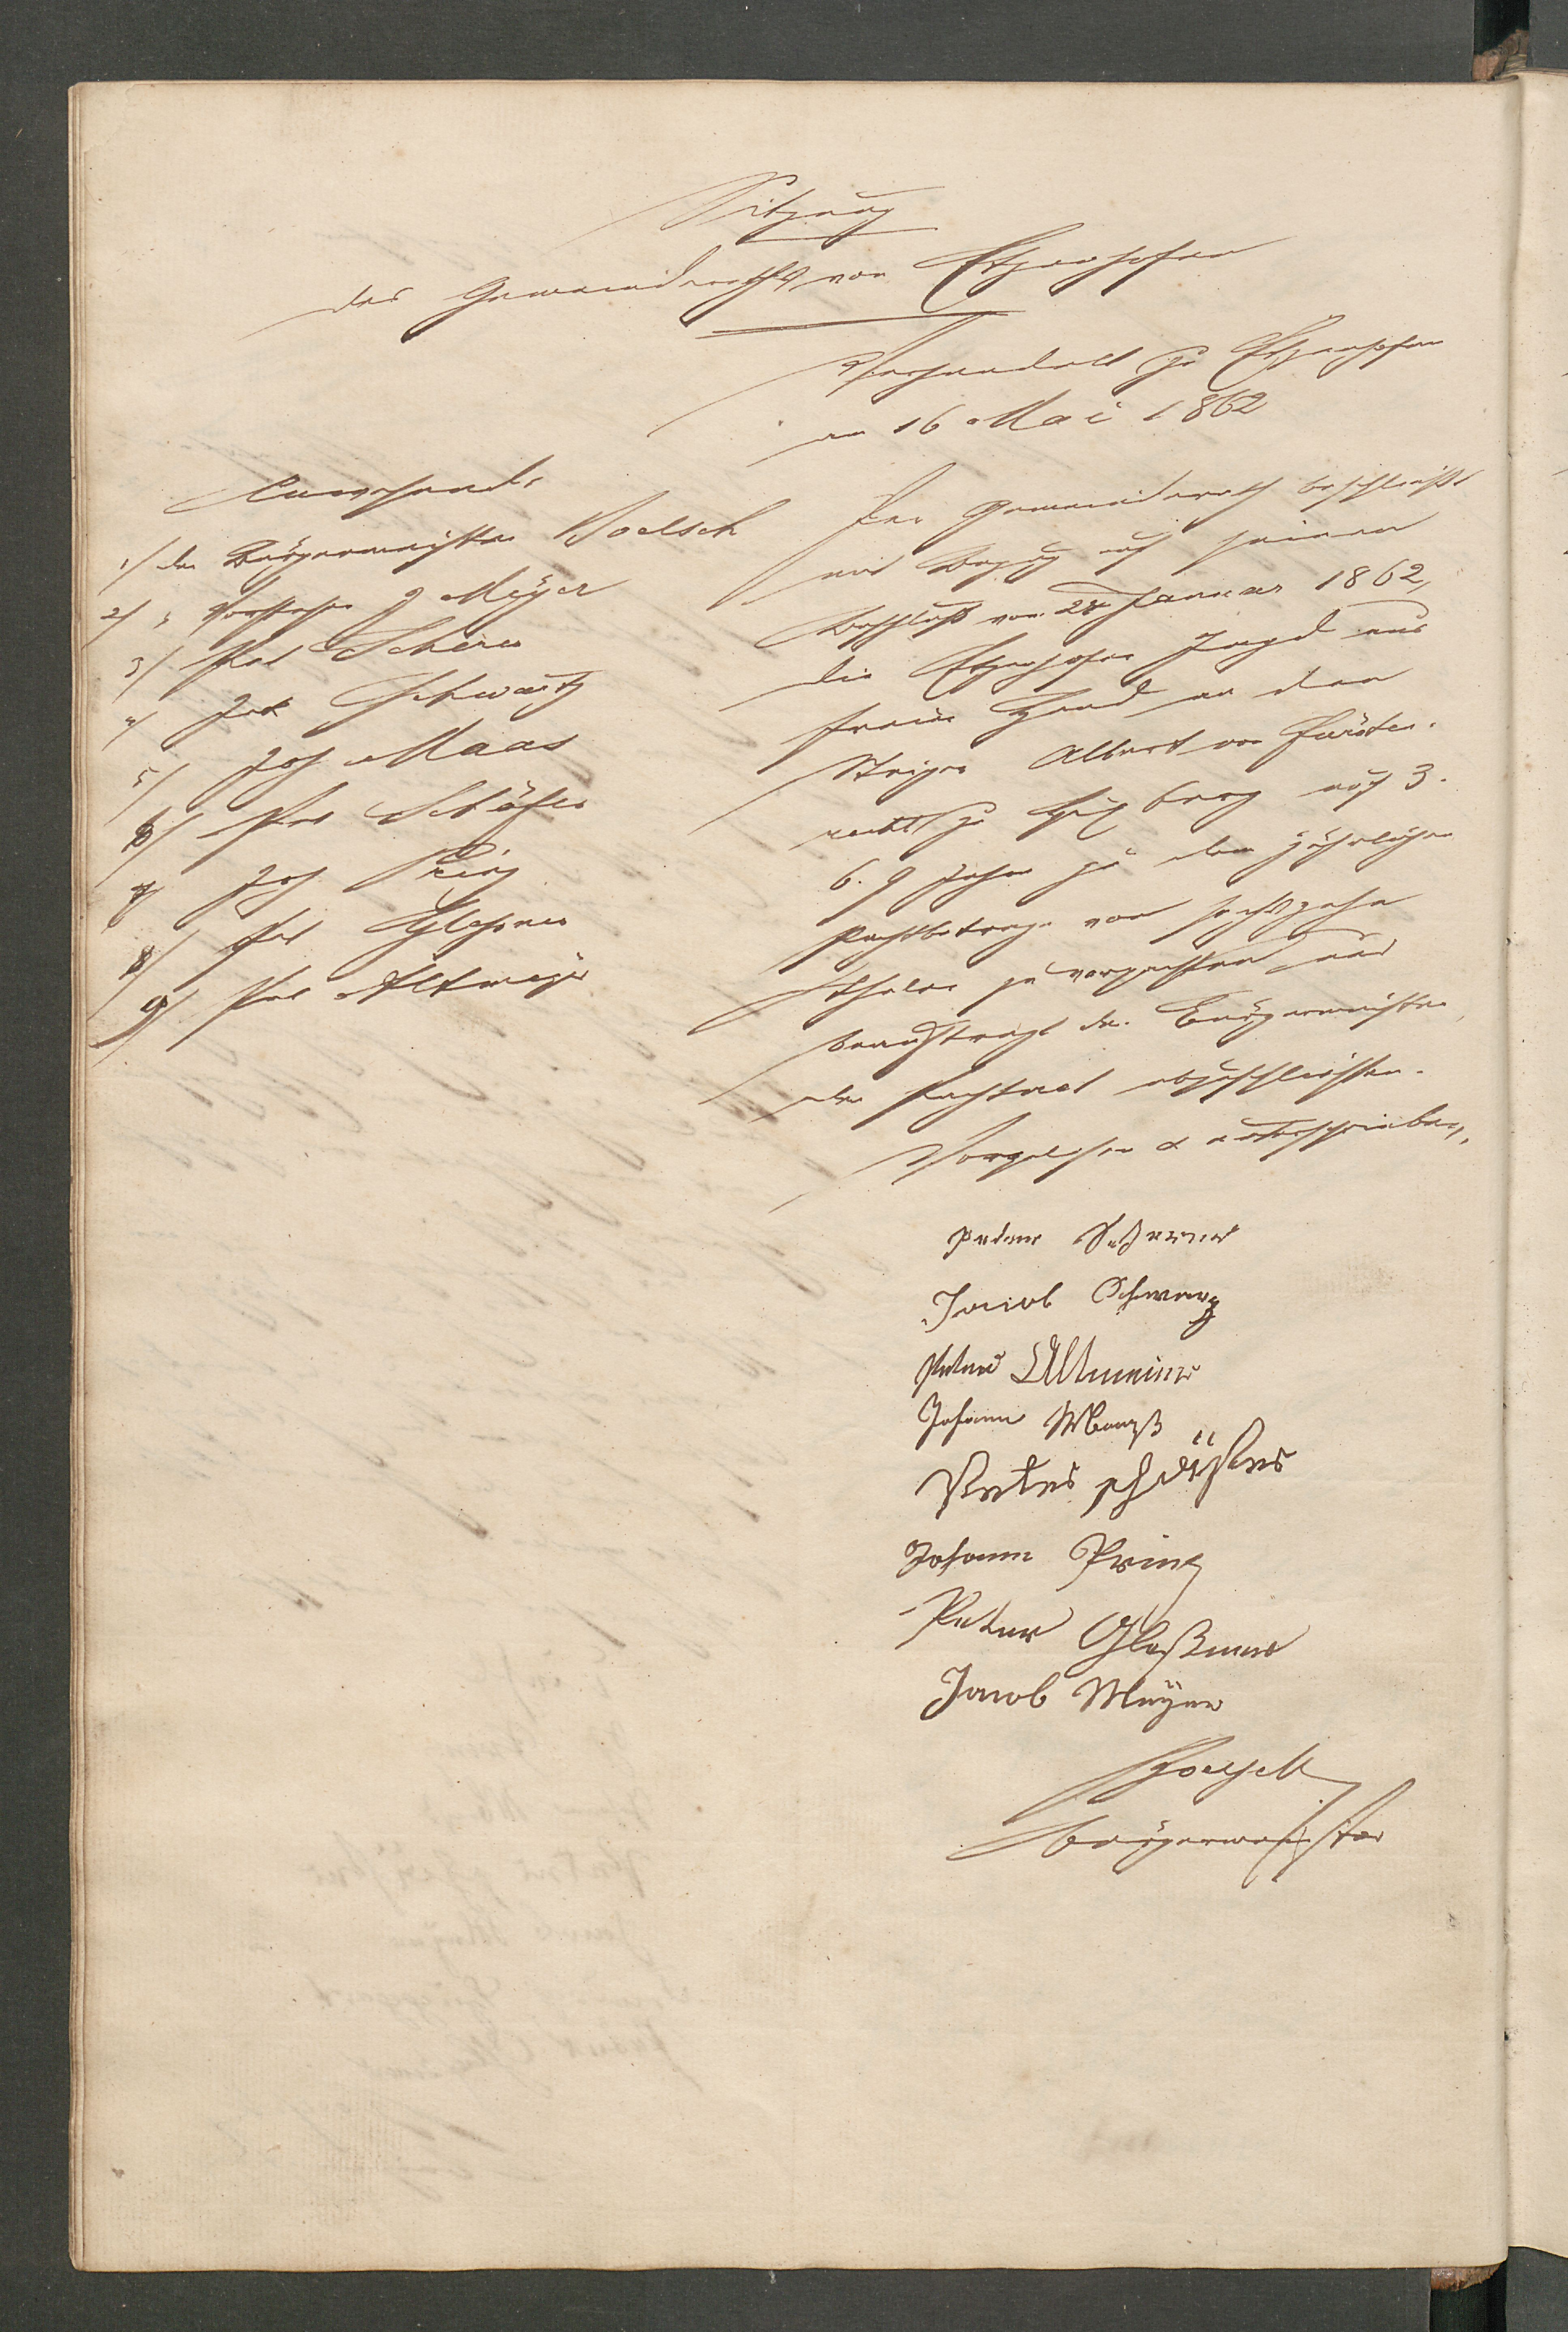 Sitzung
des Gemeinderaths von Etzenhofen
Verhandelt zu Etzenhofen
am 16 Mai 1862
Anwesend:
1/ der Bürgermeister Boelsch
2/ " Vorsteher J Meÿer
3/ Pet Scherer
4/ Jak Schwartz
5/ Joh Maas
6/ Pet Schäfer
7/ Joh Prinz
8/ Pet Glessner
9/ Pet Altmeyer
Der Gemeinderath beschließt
mit Bezug auf seinen
Beschluß vom 28 Januar 1862,
die Etzenhofer Jagd aus
freier Hand an den
Steiger Albert von Fürsten-
zu berg auf 3.
6. 9 Jahre zu dem jährlichen
Pachtbetrage von sechszehn
Thaler zu verpachten und
beauftragt den Bürgermeister,
den Pachtact abzuschliessen.
Vorgelesen & unterschrieben,
Peter Scherer
Jacob Schwarz
Peter Altmeier
Johann Maaß
Peter schäffer
Johann Prinz
Peter Gleßner
Jacob Meÿer
Boelsch
Bürgermeister